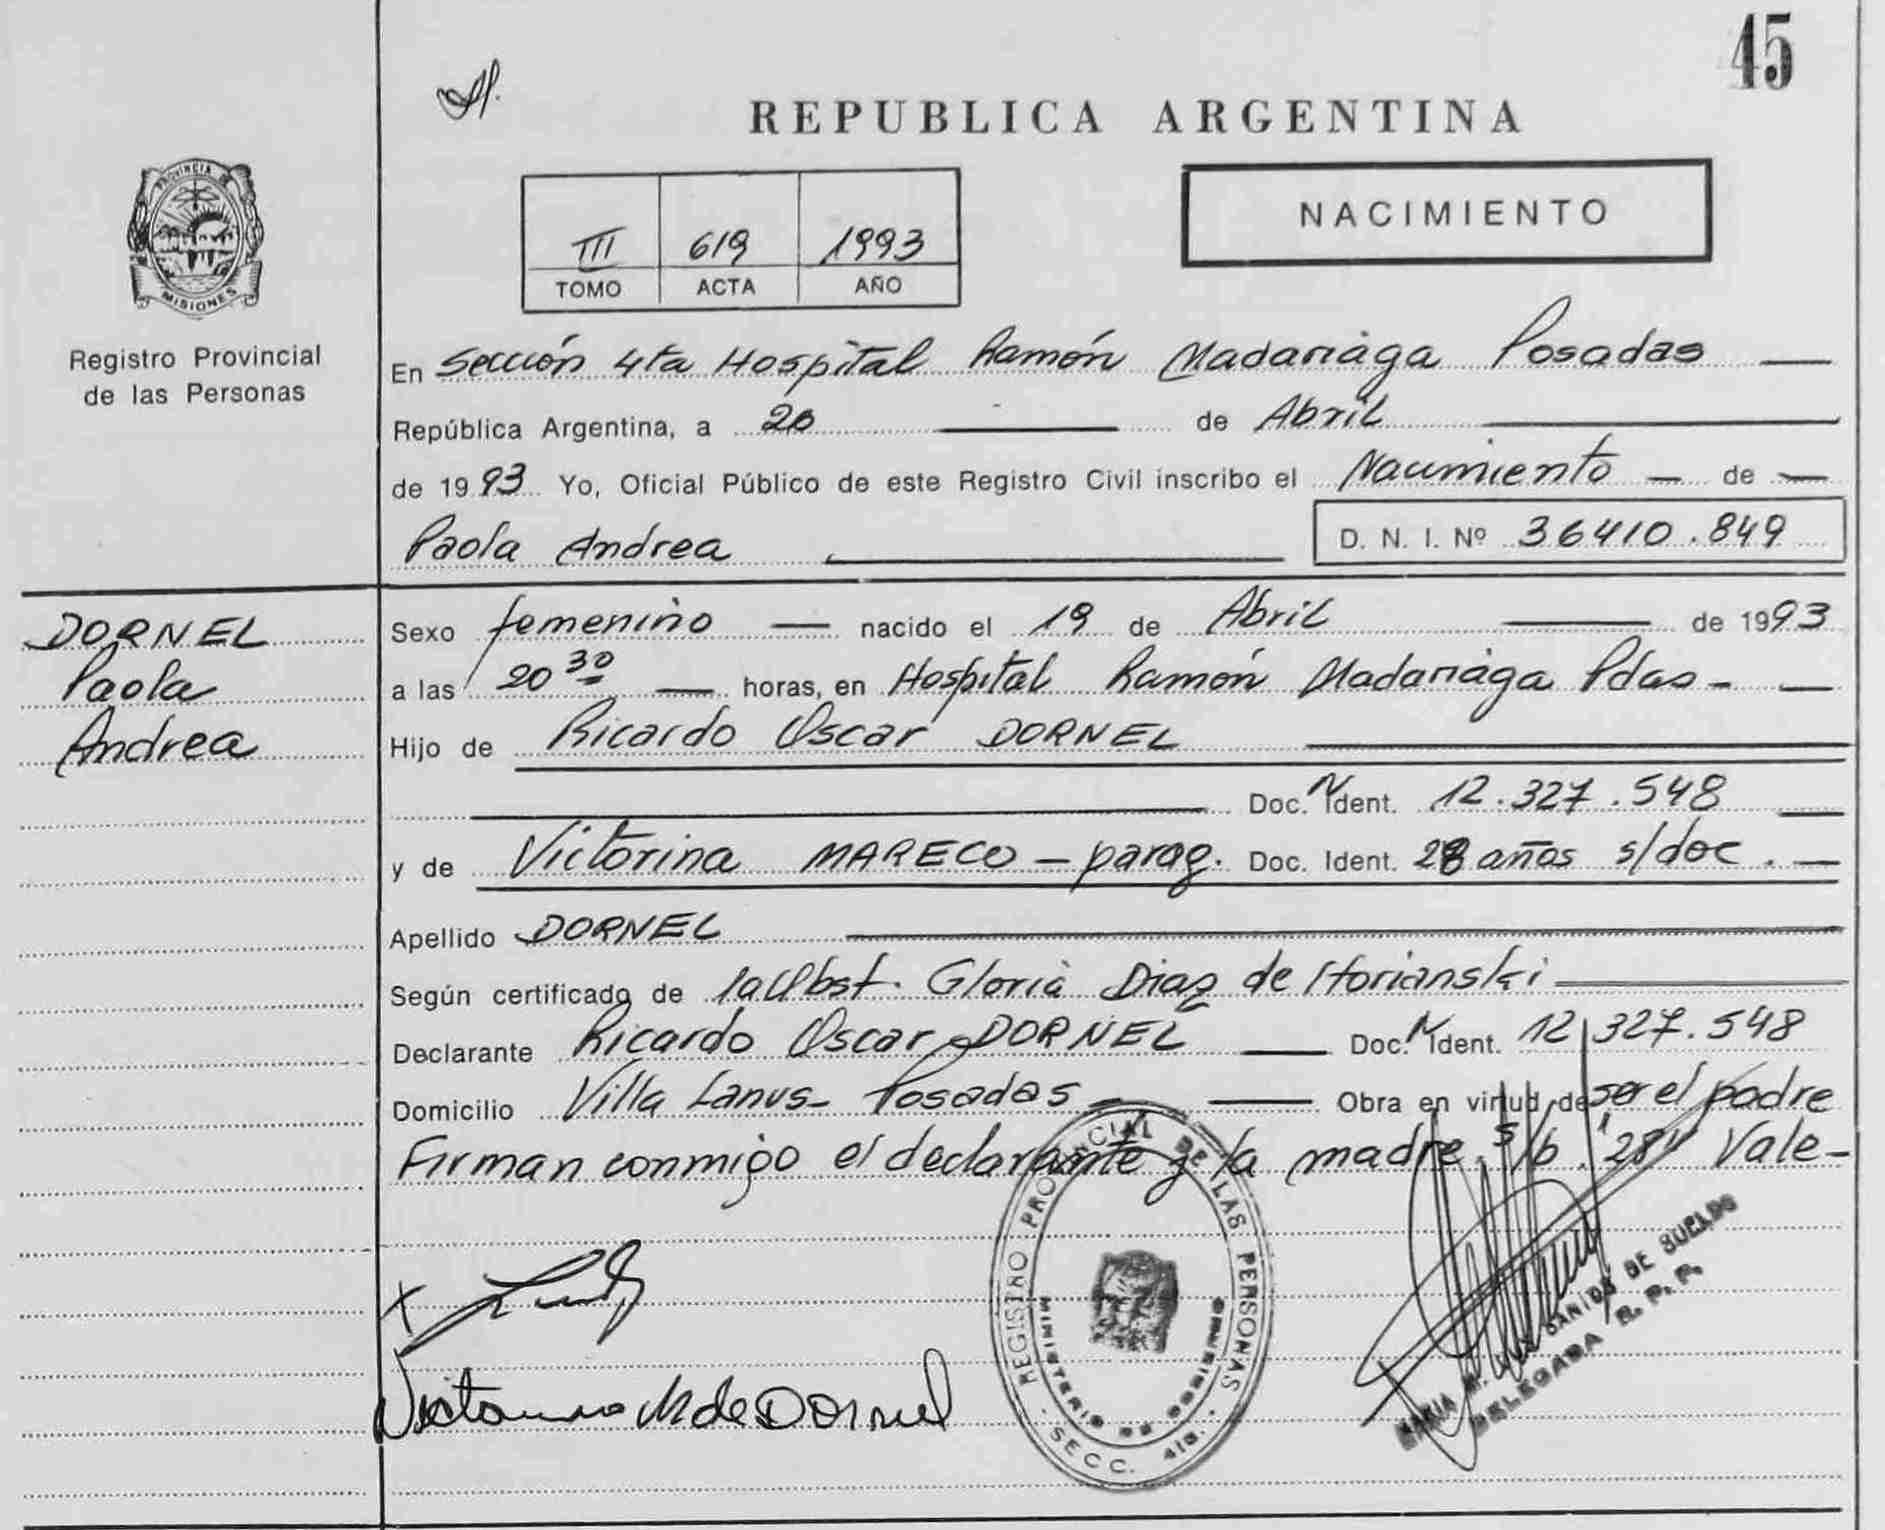 45
REPUBLICA ARGENTINA
PROVINCIA DE
MISIONES
Registro Provincial
de las Personas
NACIMIENTO
III 619 1993
TOMO ACTA AÑO
En Sección 4ta Hospital Ramón Madariaga Posadas
República Argentina, a 20 de Abril
de 1993 Yo, Oficial Público de este Registro Civil inscribo el Nacimiento de
Paola Andrea D. N. I. Nº 36410.849
DORNEL
Paola
Andrea
Sexo femenino nacido el 19 de Abril de 1993
a las 20 30 horas, en Hospital Ramón Madariaga Pdas -
Hijo de Ricardo Oscar DORNEL
Doc. N Ident. 12.327.548
y de Victorina MARECO - parag. Doc. Ident. 28 años s/doc.
Apellido DORNEL
Según certificado de la Obst. Gloria Diaz de
Declarante Ricardo Oscar DORNEL Doc. N Ident. 12.327.548
Domicilio Villa Lanus - Posadas - Obra en virtud de ser el padre
Firman conmigo el declarante y la madre. s/b. "28" Vale -
Victorina M de Dornel
REGISTRO PROVINCIAL DE LAS PERSONAS
MINISTERIO DE GOBIERNO
SECC. 4ta.
MARIA DE SUELDO
DELEGADA R. P. P.